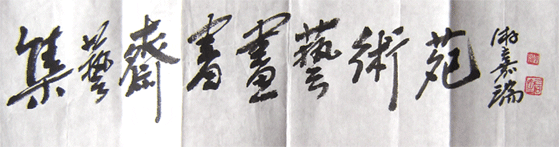 集藝齋書畫藝術苑
嘉瑞